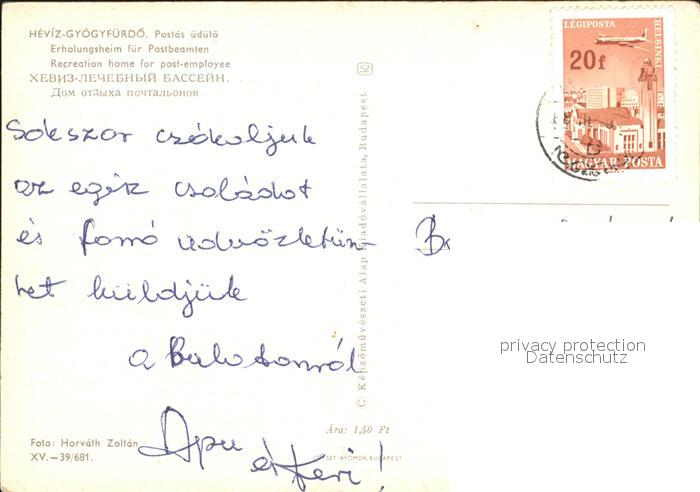 HÉVÍZ-GYÓGYFÜRDŐ. Postás üdülő
Erholungsheim für Postbeamten
Recreation home for post-employee
ХЕВИЗ-ЛЕЧЕБНЫЙ БАССЕЙН.
Дом отдыха почтальонов
Sokszor csókoljuk
az egész családot
és forró üdvözletün-
ket küldjük
a Balatonról
Apu
és Keri!
Foto: Horváth Zoltán
XV.—39/681.
Ára: 1,50 Ft
OFFSET-NYOMDA, BUDAPEST
© Képzőművészeti Alap Kiadóvállalata, Budapest
SZ
LÉGIPOSTA
HELSINKI
20f
MAGYAR POSTA
privacy protection
Datenschutz